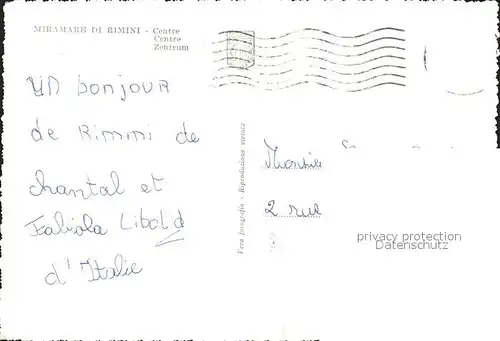 MIRAMARE DI RIMINI - Centre
Centre
Zentrum
UN bonjour
de Rimini de
chantal et
Fabiola Libold
d'Italie
Vera fotografia - Riproduzione vietata
2 rue
privacy protection
Datenschutz